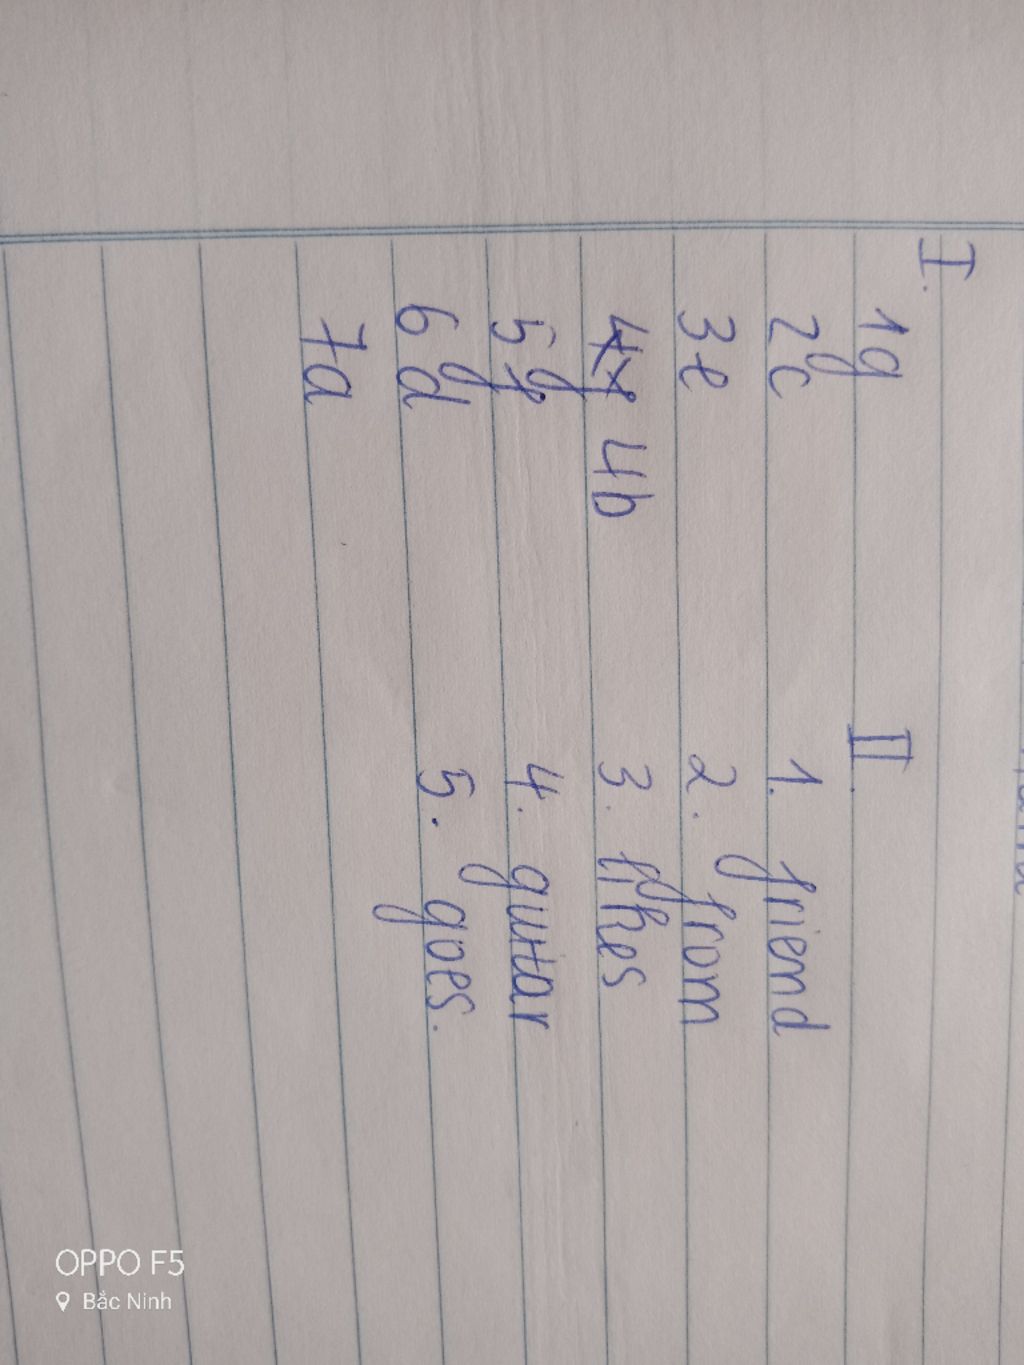 I.
1g
2c
3e
4b
5f
6d
7a
II.
1. friend
2. from
3. likes
4. guitar
5. goes.
OPPO F5
Bắc Ninh